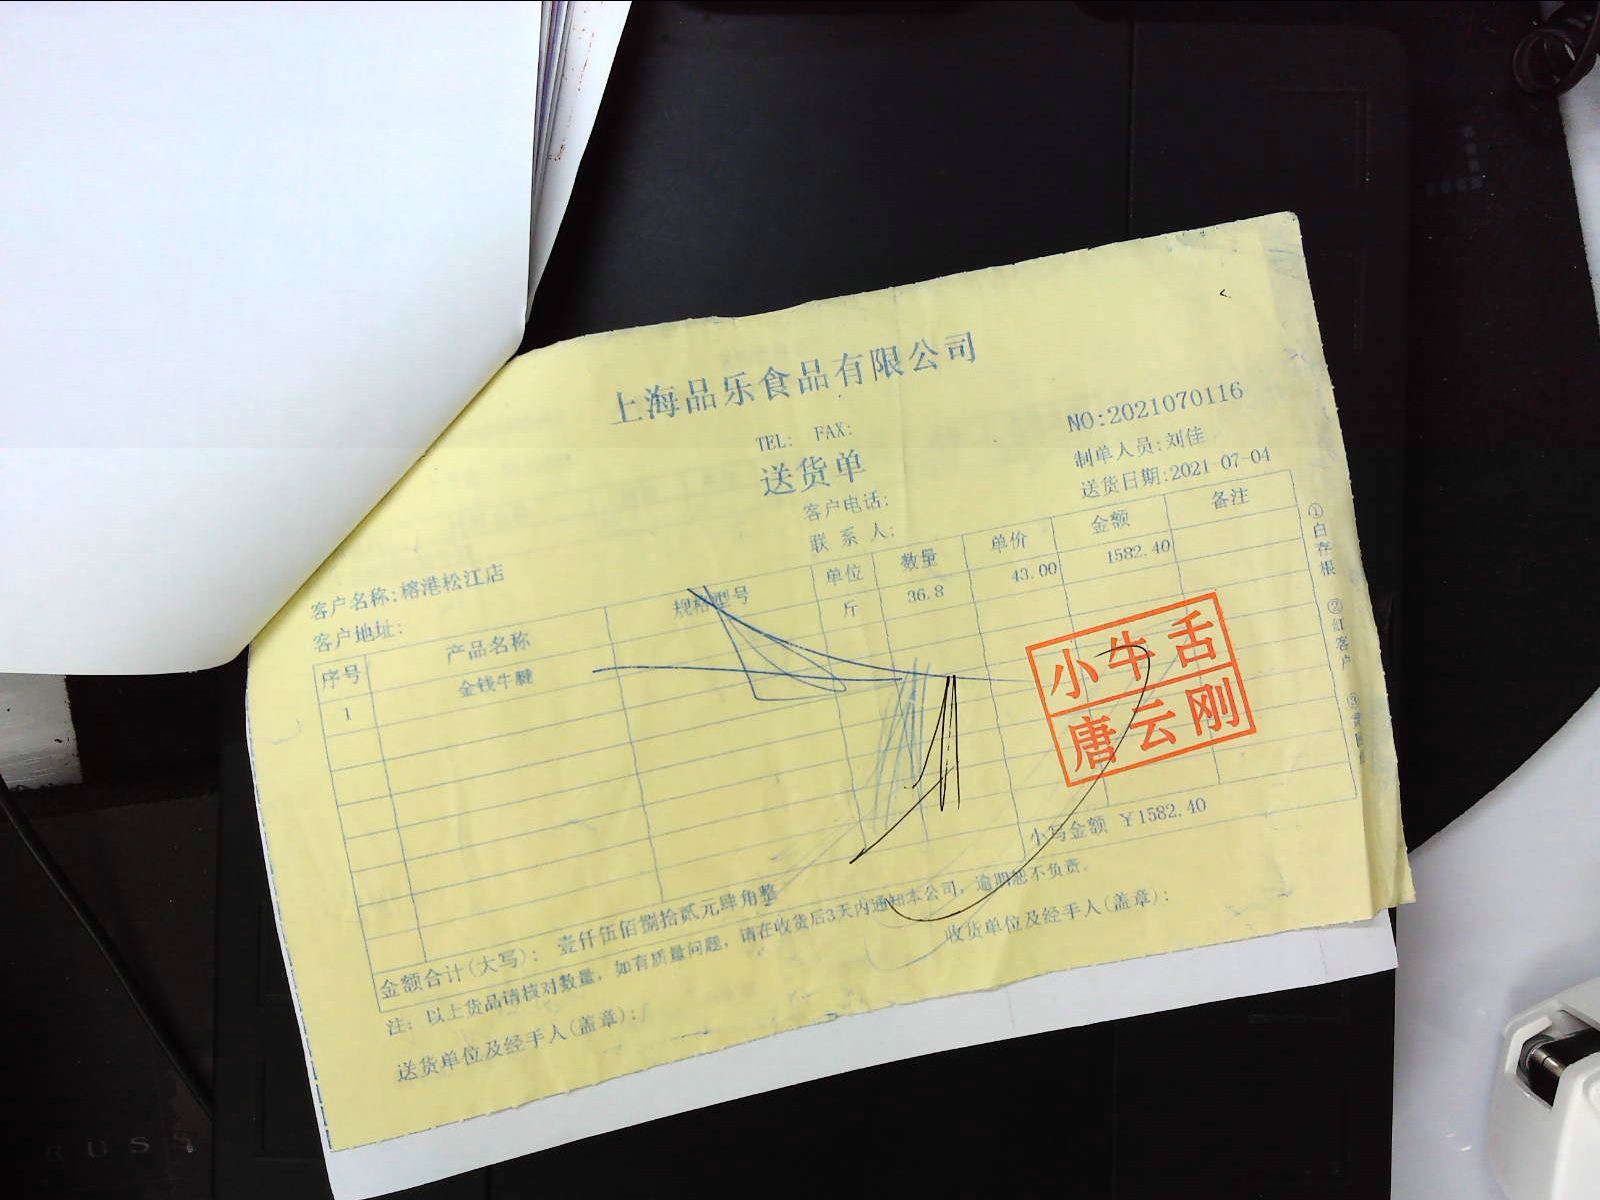 上海品乐食品有限公司
TEL: FAX:
NO:2021070116
送货单
制单人员:刘佳
客户电话:
送货日期:2021-07-04
客户名称:榕港松江店
联 系 人:
客户地址:
序号 产品名称 规格型号 单位 数量 单价 金额 备注
1 金钱牛腱 斤 36.8 43.00 1582.40
小牛舌
唐云刚
金额合计(大写): 壹仟伍佰捌拾贰元肆角整 小写金额 ￥1582.40
注: 以上货品请核对数量, 如有质量问题, 请在收货后3天内通知本公司, 逾期恕不负责.
送货单位及经手人(盖章): 收货单位及经手人(盖章):
①白存根 ②红客户 ③
RUSS